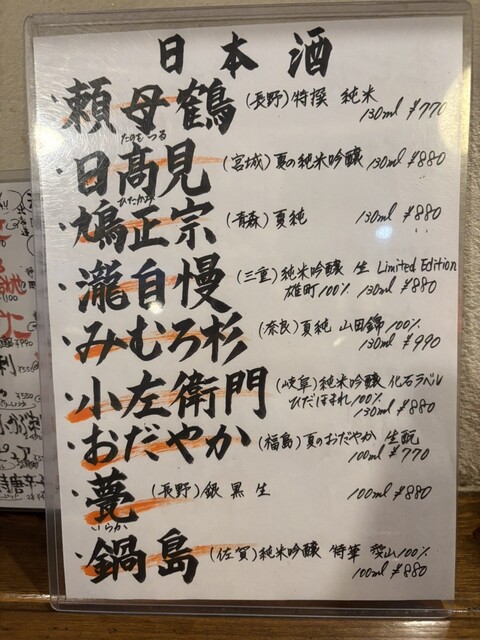 日本酒
・頼母鶴 (長野)特撰 純米
たのもつる
130ml ¥770
・日髙見 (宮城)夏の純米吟醸 130ml ¥880
ひたかみ
・鳩正宗 (青森)夏純 130ml ¥880
・瀧自慢 (三重)純米吟醸 生 Limited Edition
雄町100% 130ml ¥880
・みむろ杉 (奈良)夏純 山田錦100%
130ml ¥990
・小左衛門 (岐阜)純米吟醸 化石ラベル
ひだほまれ100%
130ml ¥880
・おだやか (福島)夏のおだやか 生酛
100ml ¥770
・甍 (長野)銀黒生 100ml ¥880
いらか
・鍋島 (佐賀)純米吟醸 特華 愛山100%
100ml ¥880